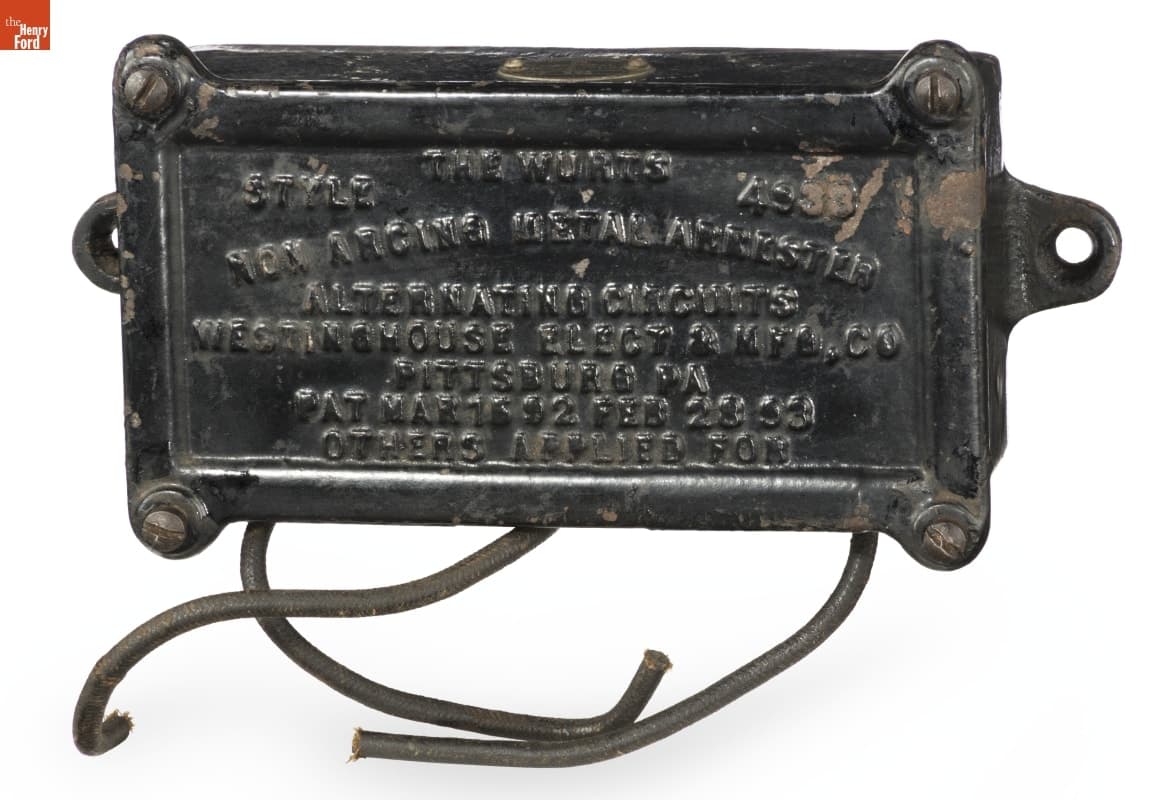 the
Henry
Ford
THE WURTS
STYLE 4933
NON ARCING METAL ARRESTER
ALTERNATING CIRCUITS
WESTINGHOUSE ELECT & MFG, CO
PITTSBURG PA
PAT MAR 15 92 FEB 28 93
OTHERS APPLIED FOR